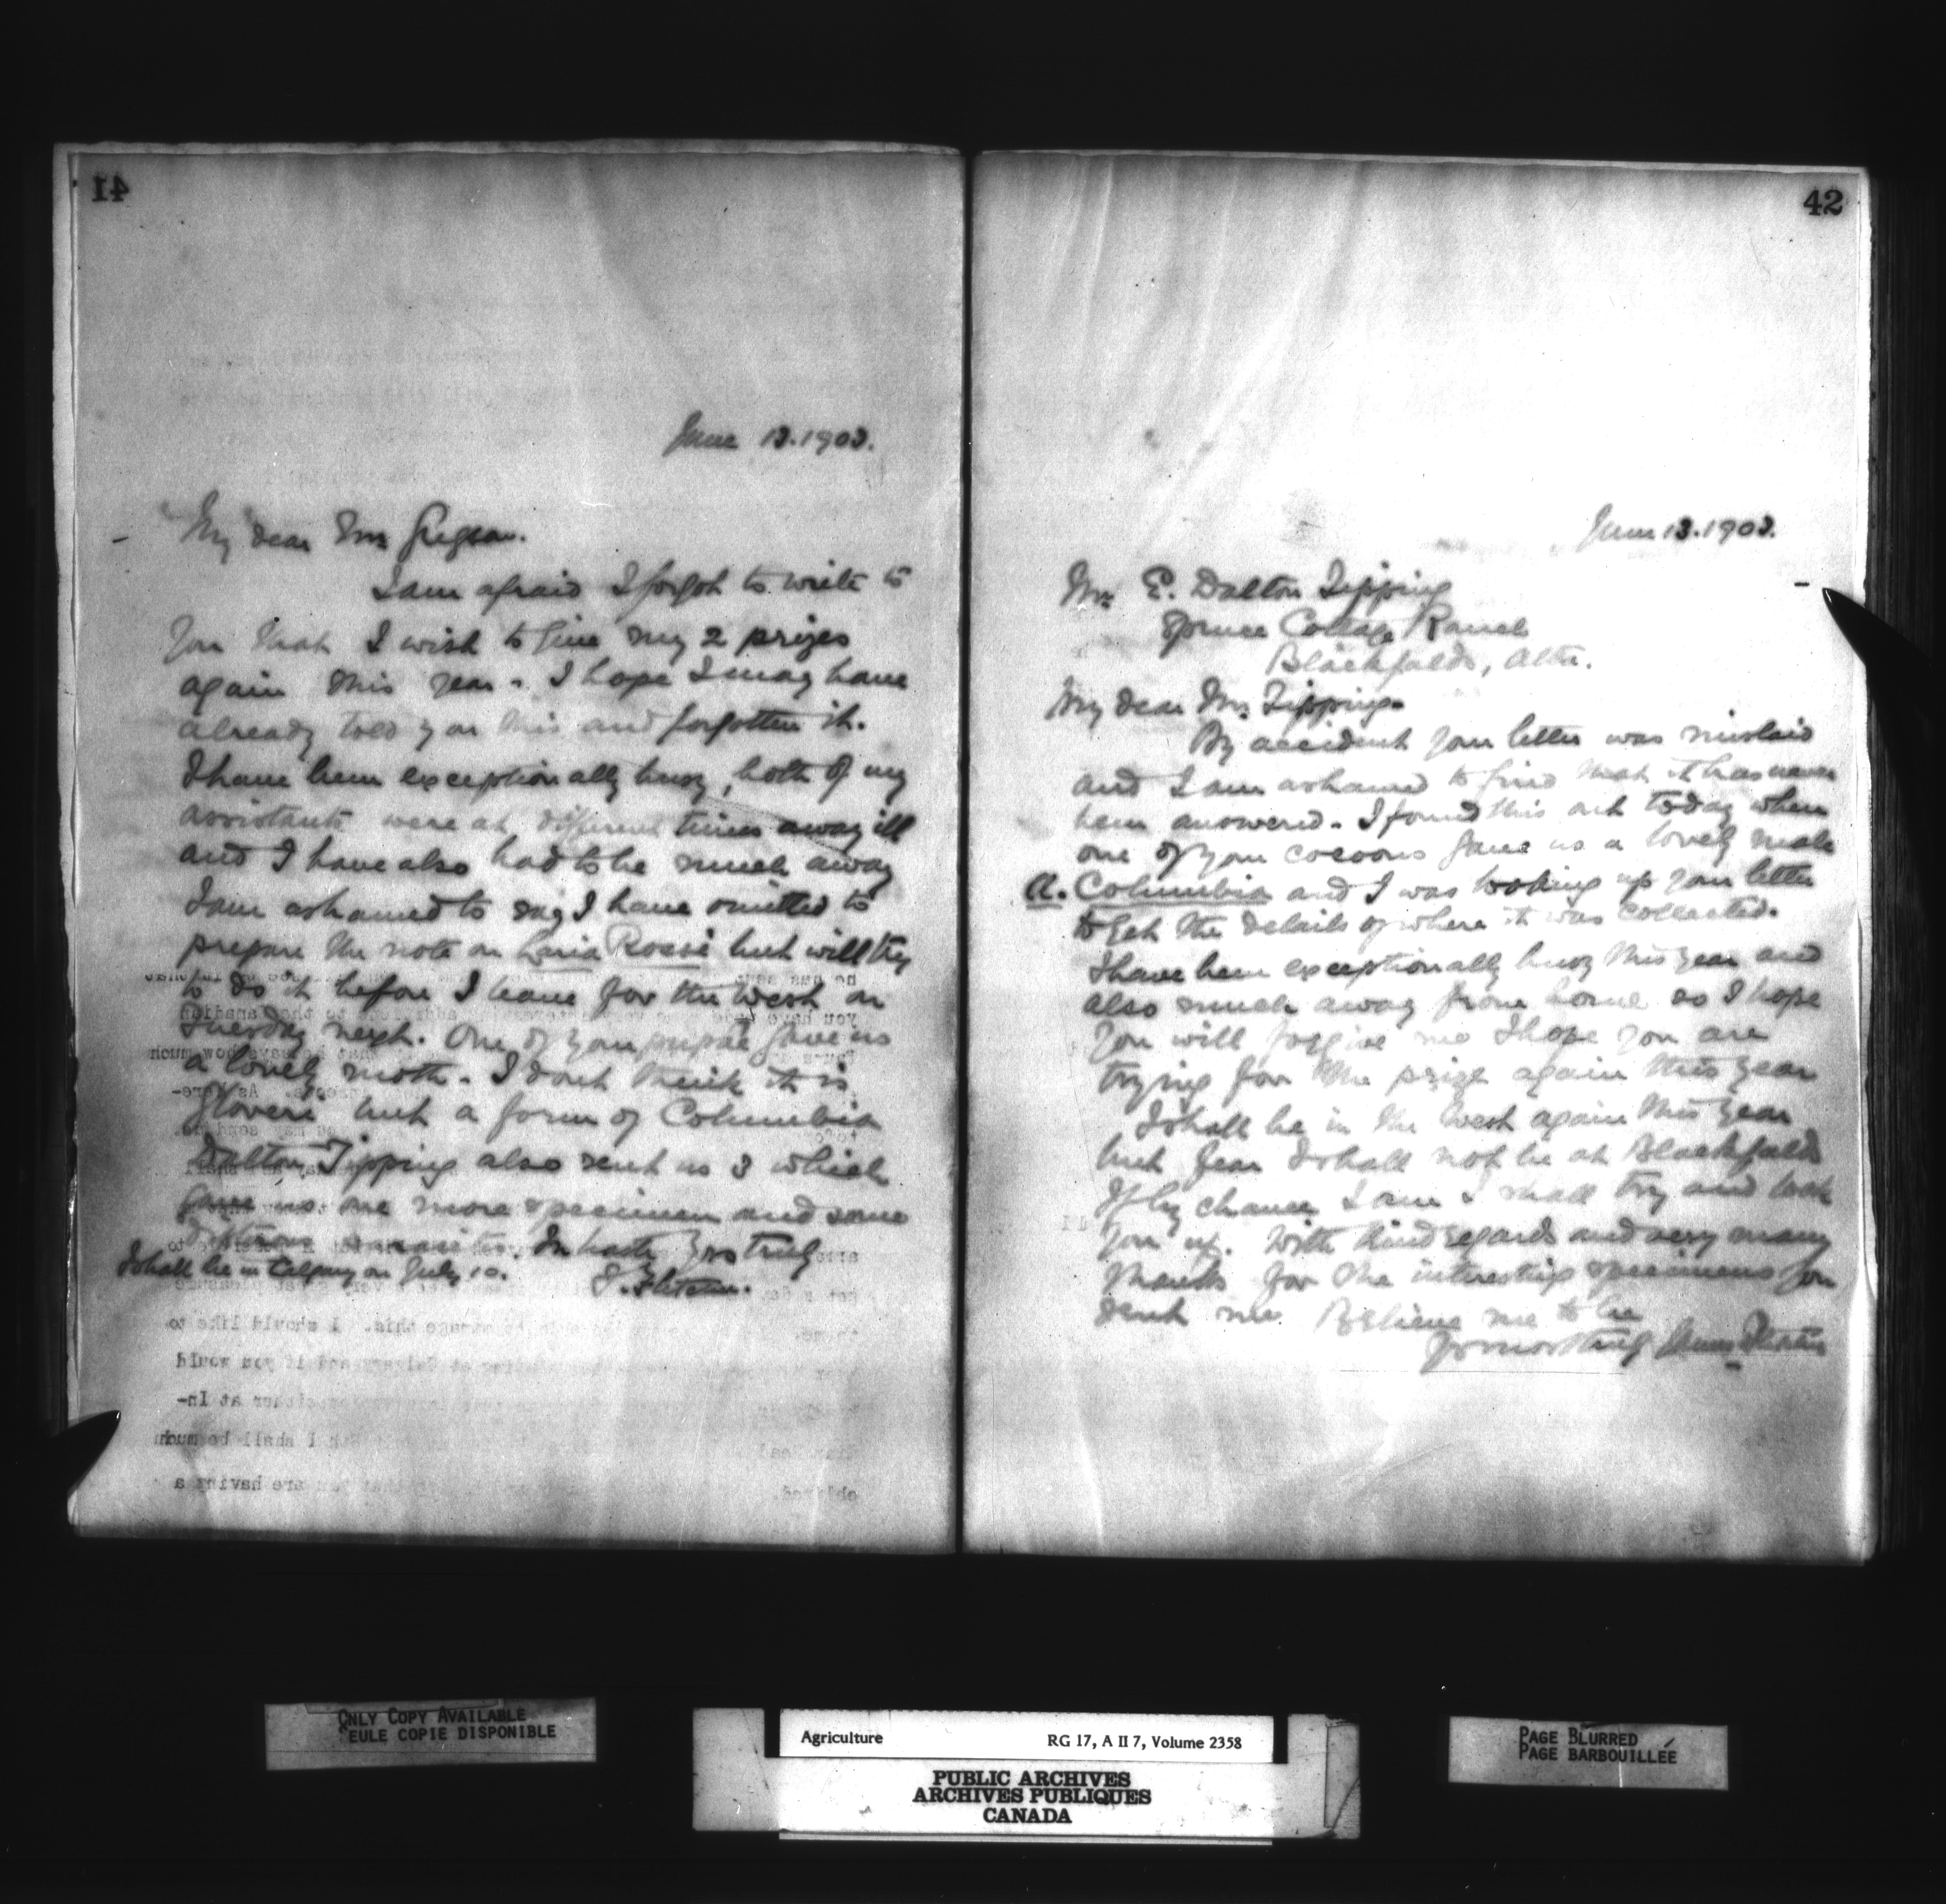 41
June 13. 1903.
My dear Mr Gregson.
I am afraid I forgot to write to
you that I wish to give my 2 prizes
again this year. I hope I may have
already told you this and forgotten it.
I have been exceptionally busy, both of my
assistants were at different times away ill
and I have also had to be much away
I am ashamed to say I have omitted to
prepare the note on Laria Rossi but will try
to do it before I leave for the West on
Tuesday next. One of your pupae gave us
a lovely moth. I dont think it is
Gloveri but a form of Columbia
Dalton Tipping also sent us 3 which
gave us one more specimen and some
dipterous parasites. In haste Yrs truly
I shall be in Calgary on July 10.
J. Fletcher.
42
June 13. 1903.
Mr. E. Dalton Tipping
Spruce Cottage Ranch
Blackfalds, Alta.
My dear Mr. Tipping.
By accident your letter was mislaid
and I am ashamed to find that it has never
been answered. I found this out today when
one of your cocoons gave us a lovely male
A. Columbia and I was looking up your letter
to get the details of where it was collected.
I have been exceptionally busy this year and
also much away from home so I hope
you will forgive me I hope you are
trying for the prize again this year
I shall be in the West again this year
but fear I shall not be at Blackfalds
If by chance I am I shall try and look
you up. With kind regards and very many
thanks for the interesting specimens you
sent me Believe me to be
Yrs most truly James Fletcher
ONLY COPY AVAILABLE
SEULE COPIE DISPONIBLE
Agriculture RG 17, A II 7, Volume 2358
PUBLIC ARCHIVES
ARCHIVES PUBLIQUES
CANADA
PAGE BLURRED
PAGE BARBOUILLÉE